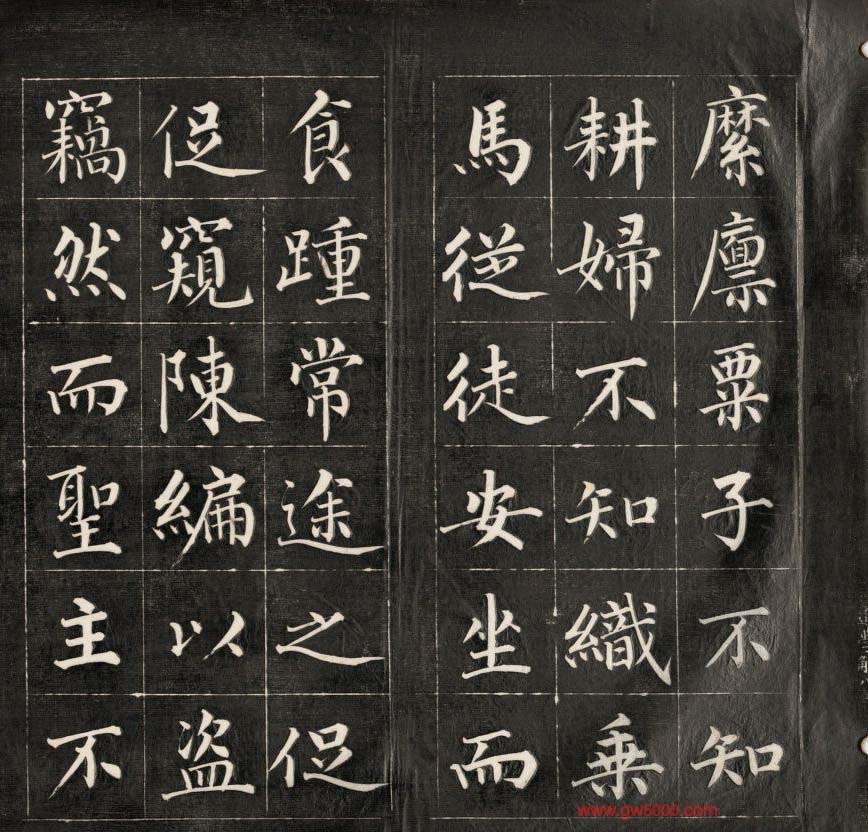 縻廩粟子不知
耕婦不知織乗
馬従徒安坐而
食踵常途之促
促窺陳編以盗
竊然而聖主不
www.gw5000.com